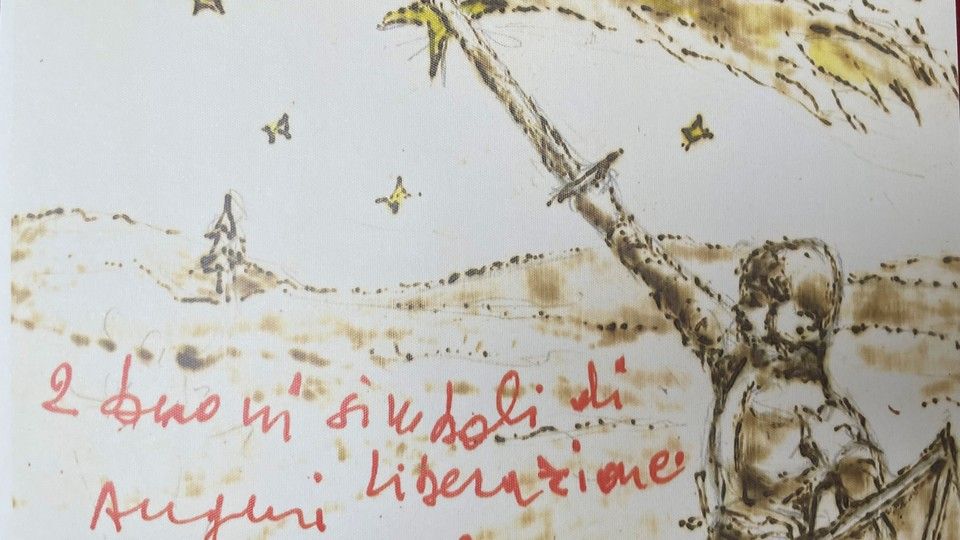 2 buoni simboli di
Liberazione
Auguri